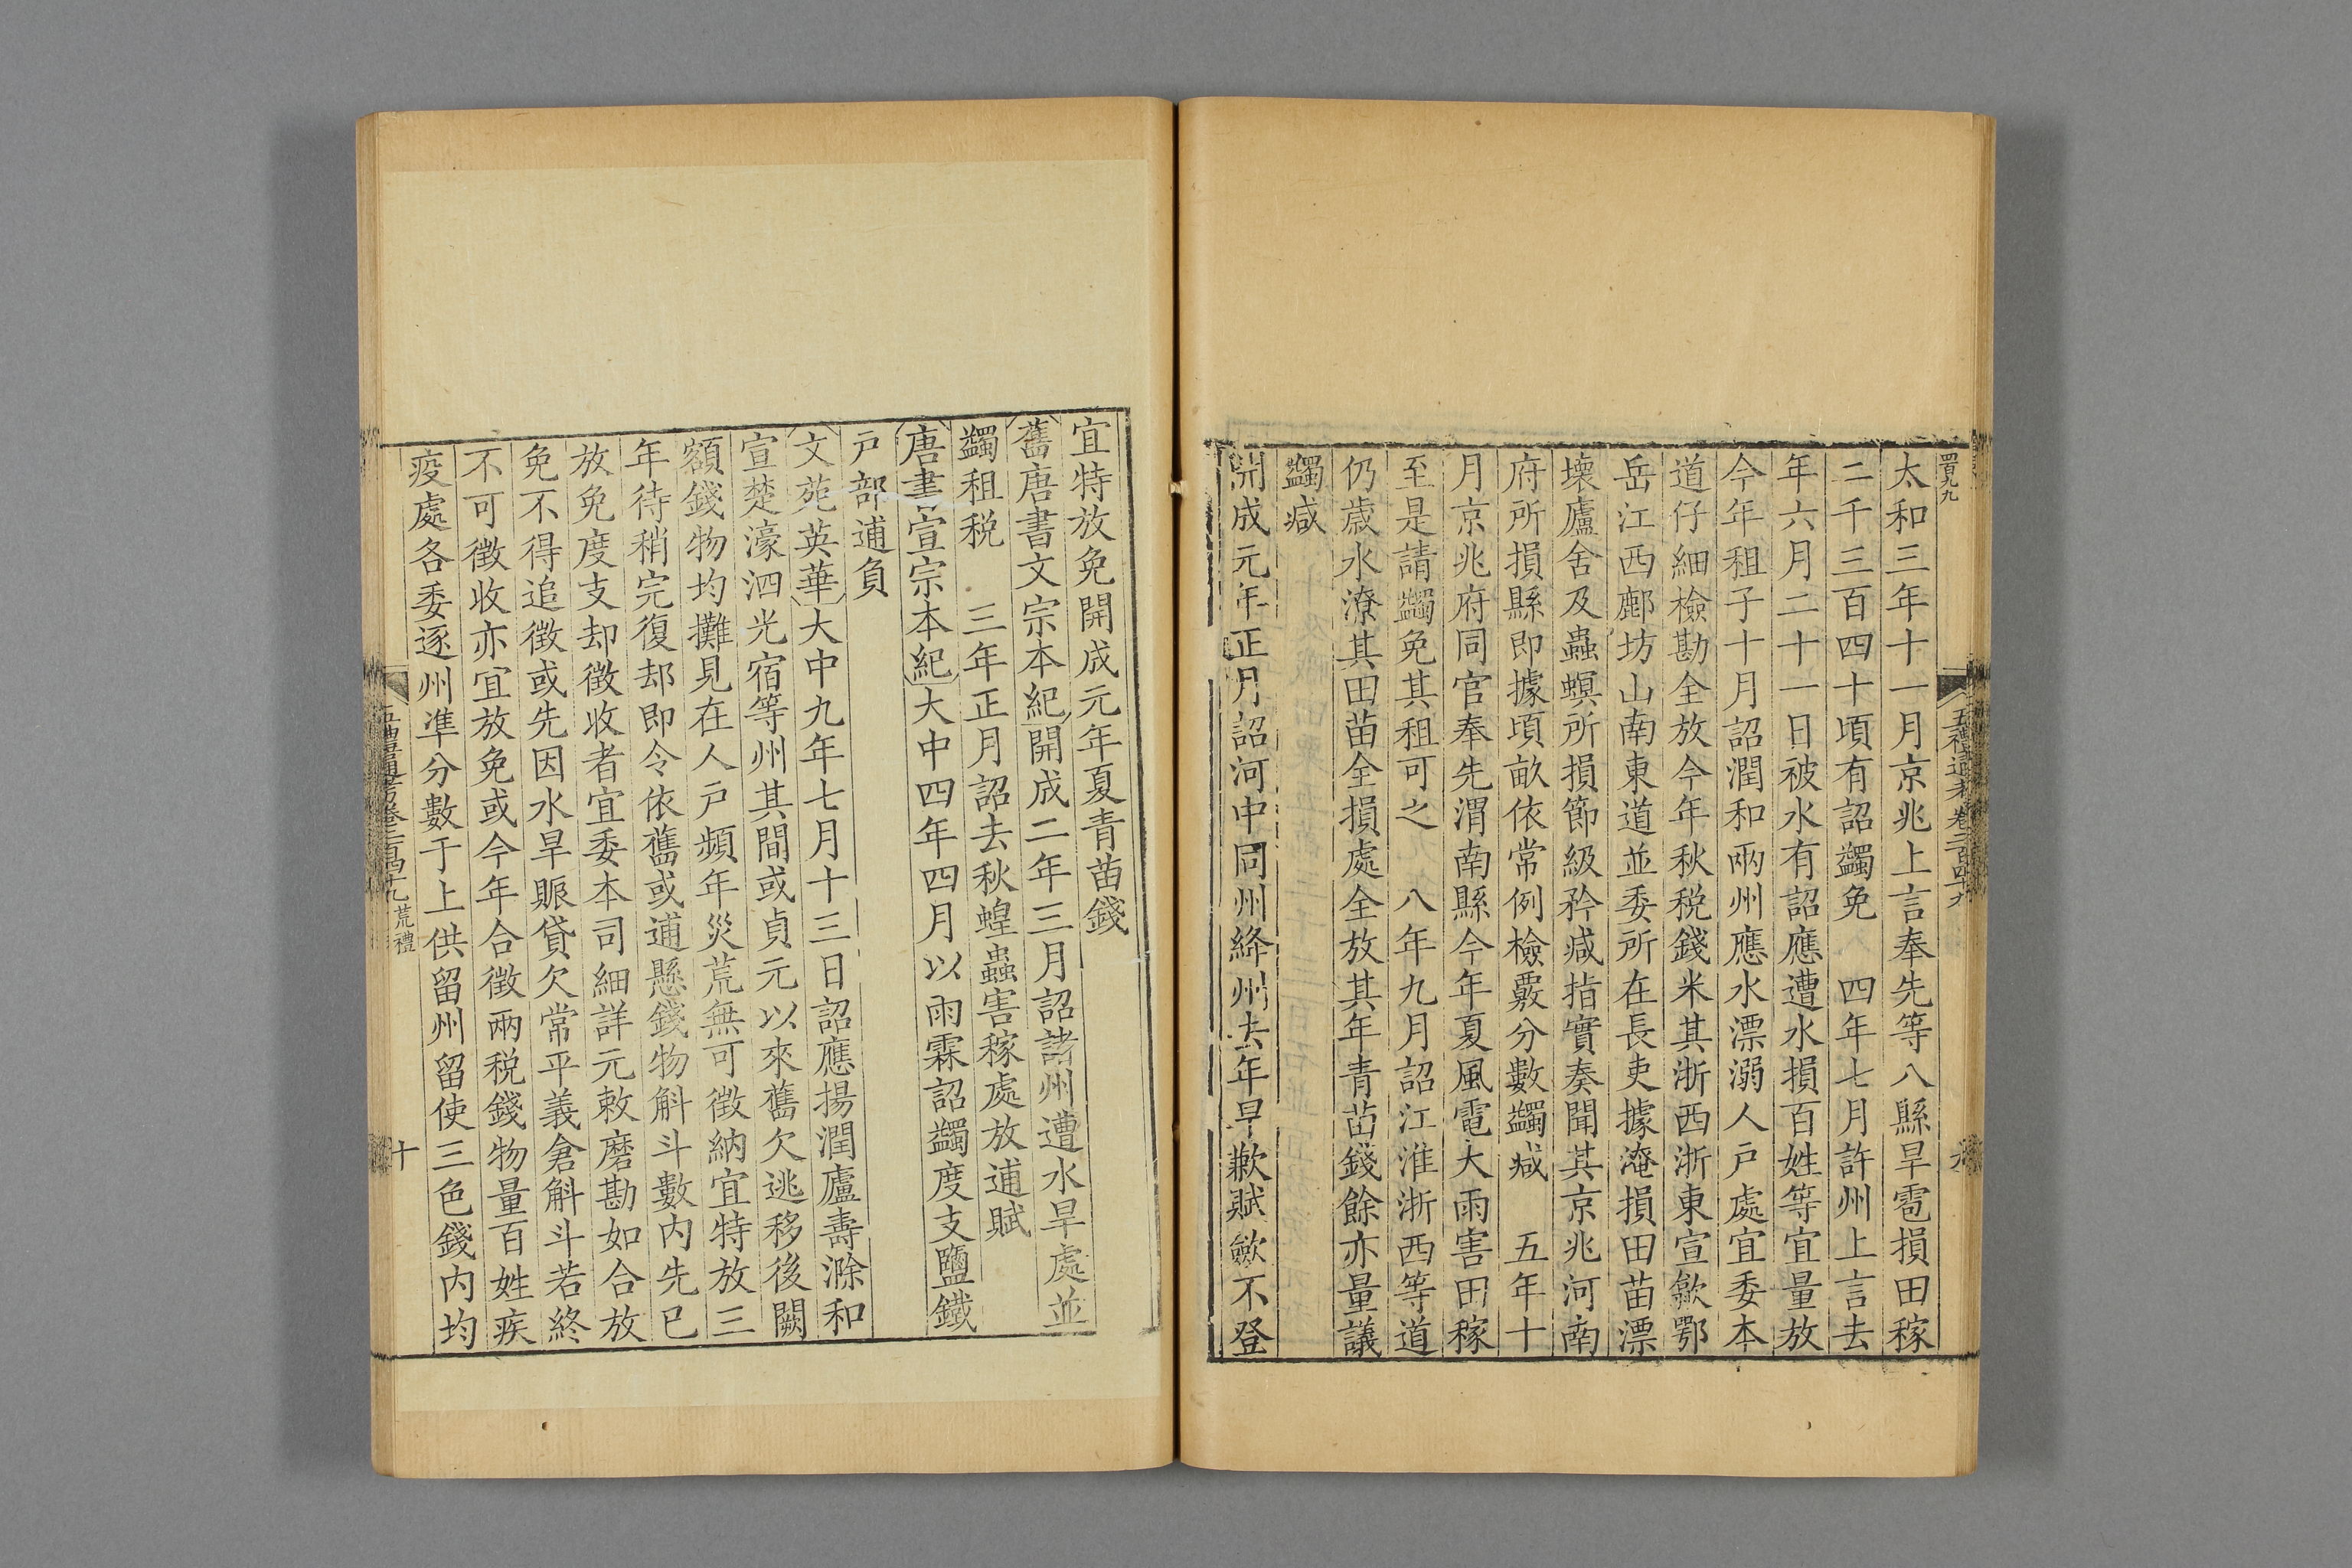 太和三年十一月京兆上言奉先等八縣旱雹損田稼
二千三百四十頃有詔蠲免　四年七月許州上言去
年六月二十一日被水有詔應遭水損百姓等宜量放
今年租子十月詔潤和兩州應水漂溺人戸處宜委本
道仔細檢勘全放今年秋税錢米其浙西浙東宣歙鄂
岳江西鄜坊山南東道並委所在長吏據淹損田苗漂
壊廬舍及蟲螟所損節級矜减指實奏聞其京兆河南
府所損縣即據頃畝依常例檢覈分數蠲减　五年十
月京兆府同官奉先渭南縣今年夏風電大雨害田稼
至是請蠲免其租可之　八年九月詔江淮浙西等道
仍歲水潦其田苗全損處全放其年青苗錢餘亦量議
蠲减
開成元年正月詔河中同州絳州去年旱歉賦斂不登
宜特放免開成元年夏青苗錢
舊唐書文宗本紀開成二年三月詔諸州遭水旱處並
蠲租税　三年正月詔去秋蝗蟲害稼處放逋賦
唐書宣宗本紀大中四年四月以雨霖詔蠲度支鹽鐵
戸部逋負
文苑英華大中九年七月十三日詔應揚潤廬壽滁和
宣楚濠泗光宿等州其間或貞元以來舊欠逃移後闕
額錢物均攤見在人戸頻年災荒無可徴納宜特放三
年待稍完復却即令依舊或逋懸錢物斛斗數内先已
放免度支却徴收者宜委本司細詳元敕磨勘如合放
免不得追徴或先因水旱賑貸欠常平義倉斛斗若終
不可徴收亦宜放免或今年合徴兩税錢物量百姓疾
疫處各委逐州準分數于上供留州留使三色錢内均
五禮通考卷二百四十九 荒禮
十